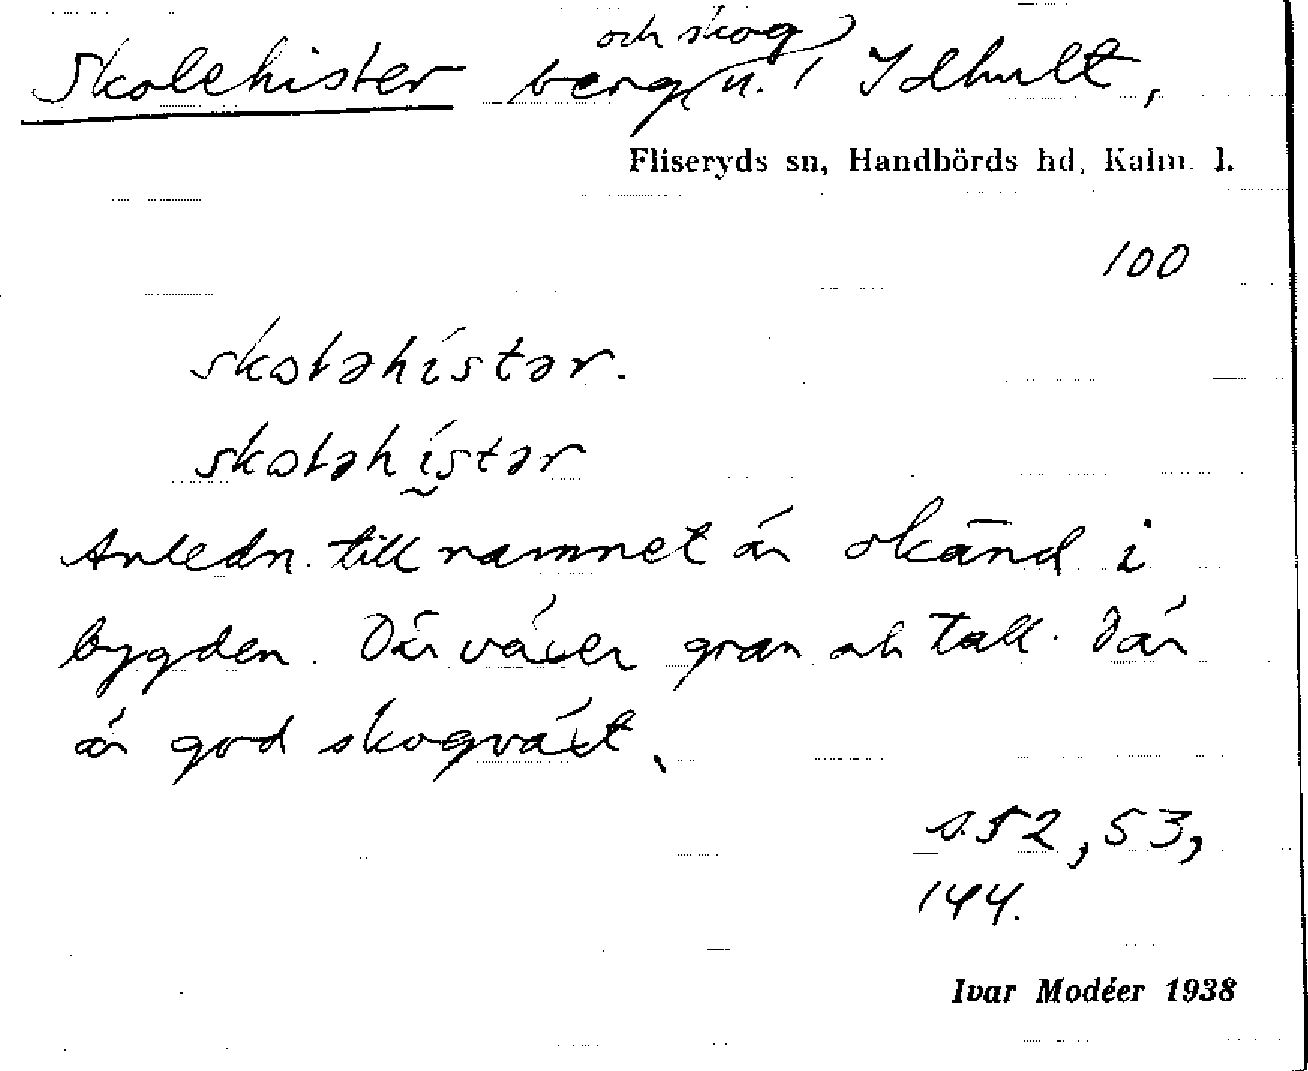 Skolehister berg och skog n. / Idhult,
Fliseryds sn, Handbörds hd, Kalm. l.
100
skoləhístər.
skoləhístər
Anledn. till namnet är okänd i
bygden. Där växer gran och tall. Där
är god skogväxt.
s. 52, 53,
144.
Ivar Modéer 1938